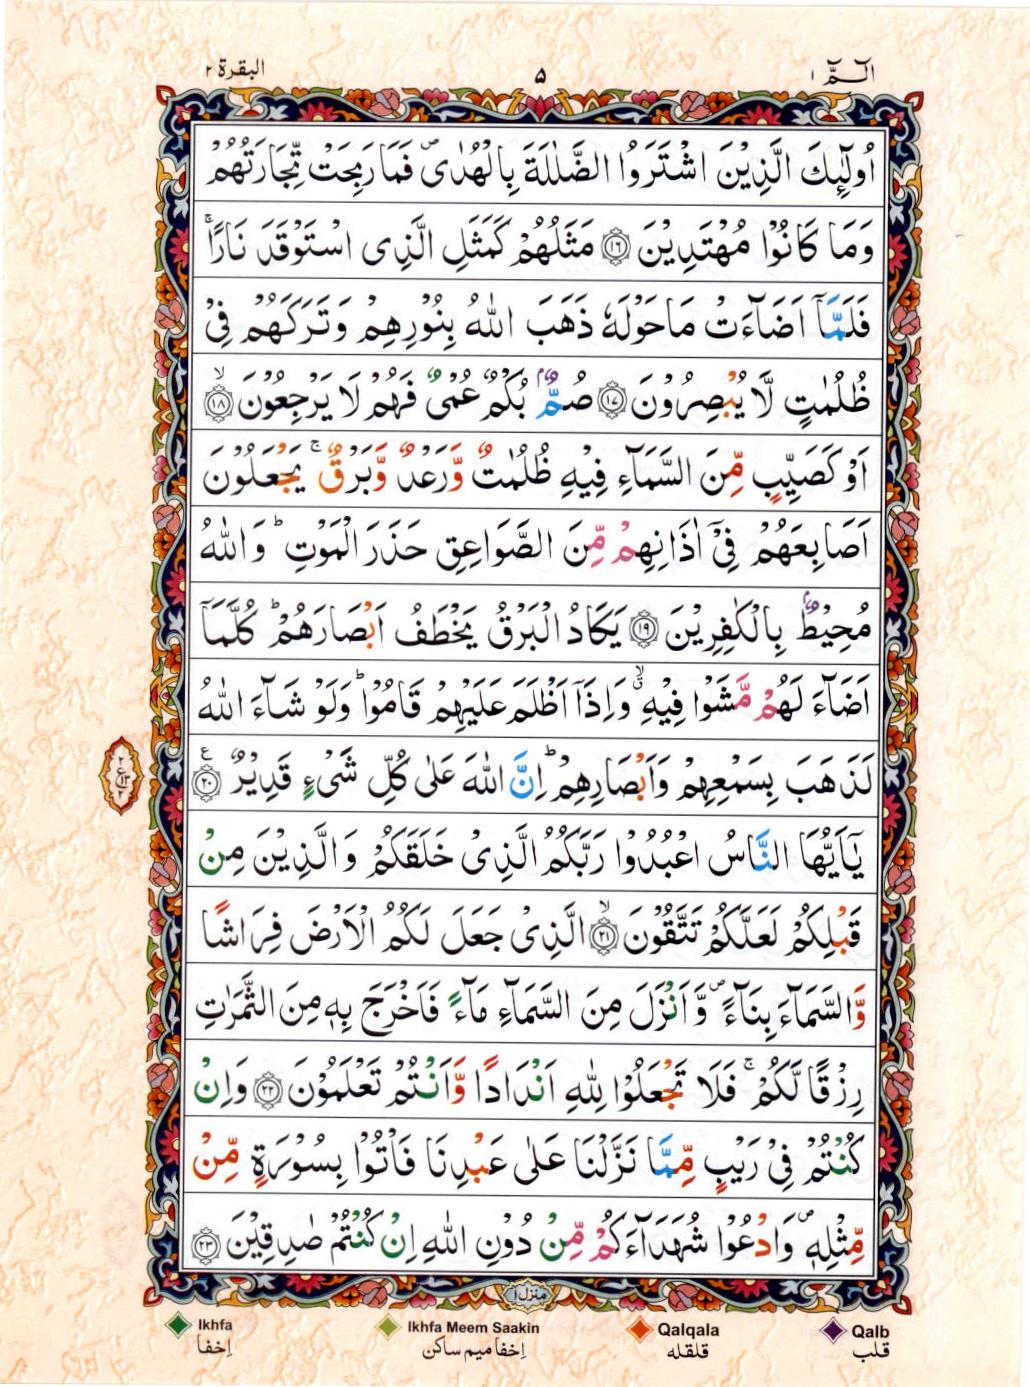 الٓـمّٓ ١
٥
البقرة ٢
اُولٰٓئِكَ الَّذِيْنَ اشْتَرَوُا الضَّلٰلَةَ بِالْهُدٰى ۪ فَمَا رَبِحَتْ تِّجَارَتُهُمْ
وَمَا كَانُوْا مُهْتَدِيْنَ ﴿١٦﴾ مَثَلُهُمْ كَمَثَلِ الَّذِى اسْتَوْقَدَ نَارًا ۚ
فَلَمَّآ اَضَآءَتْ مَا حَوْلَهٗ ذَهَبَ اللّٰهُ بِنُوْرِهِمْ وَتَرَكَهُمْ فِىْ
ظُلُمٰتٍ لَّا يُبْصِرُوْنَ ﴿١٧﴾ صُمٌّۢ بُكْمٌ عُمْىٌ فَهُمْ لَا يَرْجِعُوْنَ ۙ﴿١٨﴾
اَوْ كَصَيِّبٍ مِّنَ السَّمَآءِ فِيْهِ ظُلُمٰتٌ وَّرَعْدٌ وَّبَرْقٌ ۚ يَجْعَلُوْنَ
اَصَابِعَهُمْ فِىْٓ اٰذَانِهِمْ مِّنَ الصَّوَاعِقِ حَذَرَ الْمَوْتِ ؕ وَاللّٰهُ
مُحِيْطٌۢ بِالْكٰفِرِيْنَ ﴿١٩﴾ يَكَادُ الْبَرْقُ يَخْطَفُ اَبْصَارَهُمْ ؕ كُلَّمَآ
اَضَآءَ لَهُمْ مَّشَوْا فِيْهِ ۙۗ وَاِذَآ اَظْلَمَ عَلَيْهِمْ قَامُوْا ؕ وَلَوْ شَآءَ اللّٰهُ
لَذَهَبَ بِسَمْعِهِمْ وَاَبْصَارِهِمْ ؕ اِنَّ اللّٰهَ عَلٰى كُلِّ شَىْءٍ قَدِيْرٌ ﴿٢٠﴾ ع
يٰٓاَيُّهَا النَّاسُ اعْبُدُوْا رَبَّكُمُ الَّذِىْ خَلَقَكُمْ وَالَّذِيْنَ مِنْ
قَبْلِكُمْ لَعَلَّكُمْ تَتَّقُوْنَ ۙ﴿٢١﴾ الَّذِىْ جَعَلَ لَكُمُ الْاَرْضَ فِرَاشًا
وَّالسَّمَآءَ بِنَآءً ۪ وَّاَنْزَلَ مِنَ السَّمَآءِ مَآءً فَاَخْرَجَ بِهٖ مِنَ الثَّمَرٰتِ
رِزْقًا لَّكُمْ ۚ فَلَا تَجْعَلُوْا لِلّٰهِ اَنْدَادًا وَّاَنْتُمْ تَعْلَمُوْنَ ﴿٢٢﴾ وَاِنْ
كُنْتُمْ فِىْ رَيْبٍ مِّمَّا نَزَّلْنَا عَلٰى عَبْدِنَا فَاْتُوْا بِسُوْرَةٍ مِّنْ
مِّثْلِهٖ ۪ وَادْعُوْا شُهَدَآءَكُمْ مِّنْ دُوْنِ اللّٰهِ اِنْ كُنْتُمْ صٰدِقِيْنَ ﴿٢٣﴾
منزل ١
Ikhfa Ikhfa Meem Saakin Qalqala Qalb
اِخفا اِخفا میم ساکن قلقله قلب